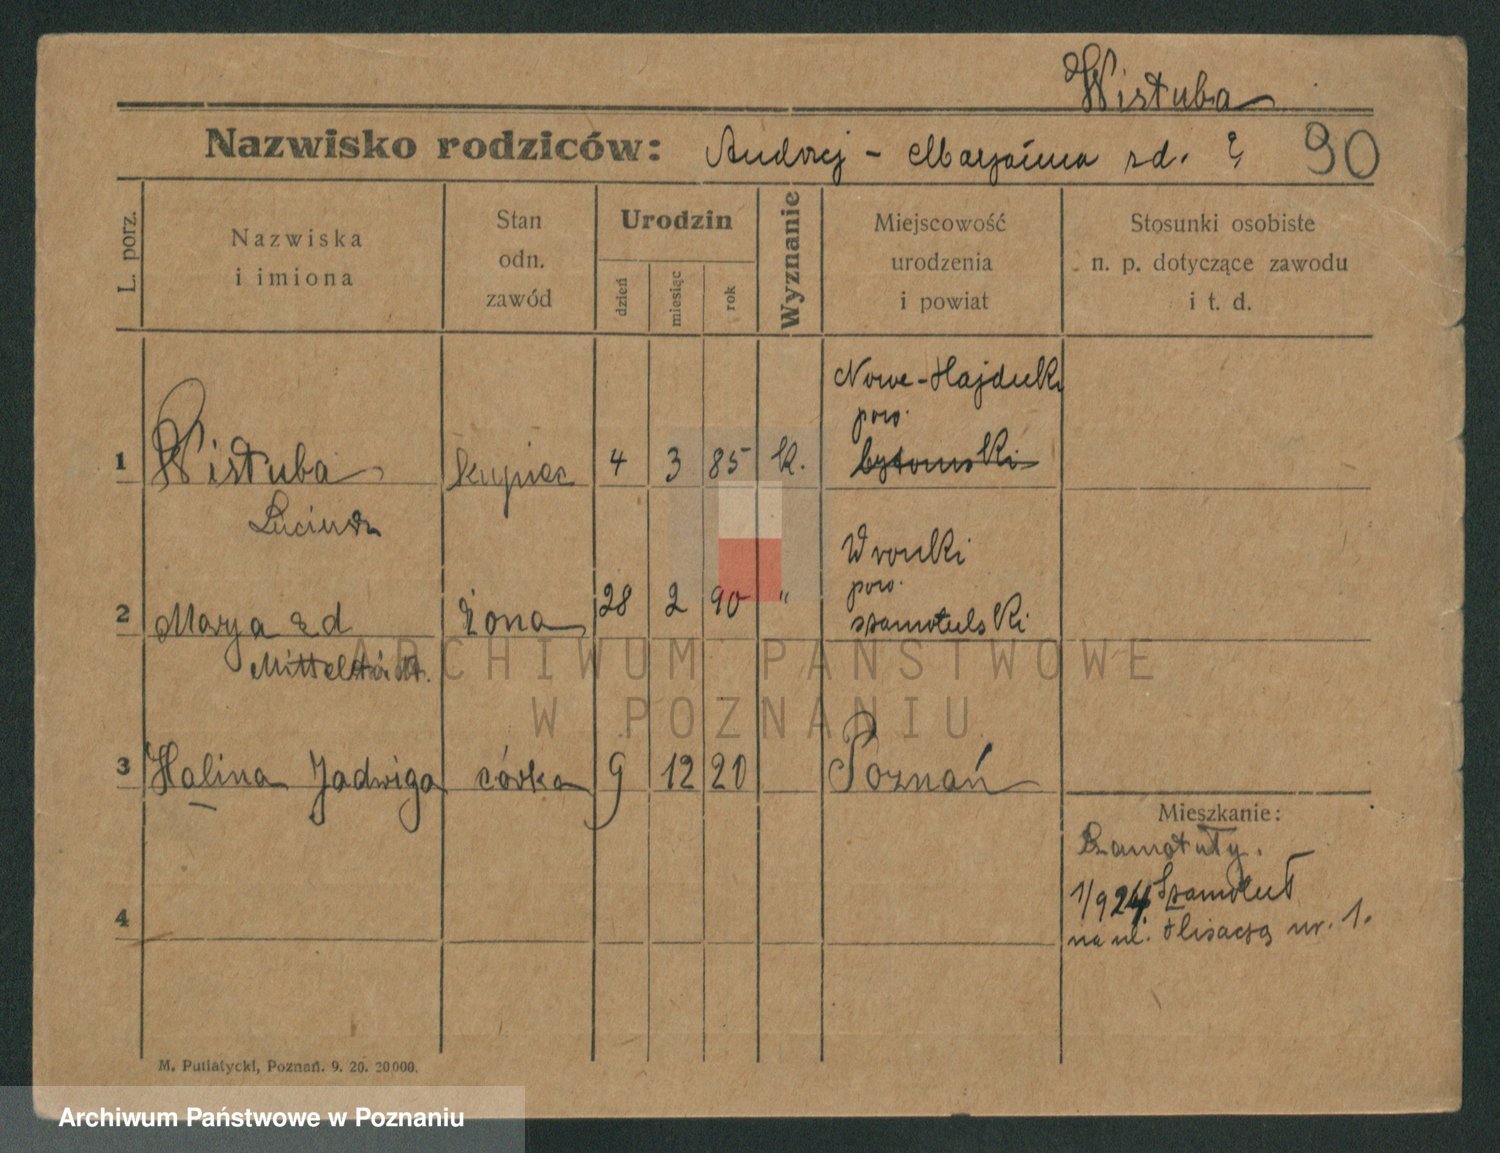 Wistuba
Nazwisko rodziców: Andrzej - Marjanna zd. ?
90
L. porz.
Nazwiska
i imiona
Stan
odn.
zawód
Urodzin
dzień
miesiąc
rok
Wyznanie
Miejscowość
urodzenia
i powiat
Stosunki osobiste
n. p. dotyczące zawodu
i t. d.
1 Wistuba kupiec 4 3 85 k. Nowe-Hajduki
pow.
bytomski
2 Marja zd żona 28 2 90 " Wronki
pow.
szamotulski
3 Halina Jadwiga córka 9 12 20 Poznań
Mieszkanie:
Szamotuły.
1/9 24. Szamotuł
na ul. nr. 1.
4
M. Putiatycki, Poznań. 9. 20. 20000.
ARCHIWUM PAŃSTWOWE
W POZNANIU
Archiwum Państwowe w Poznaniu